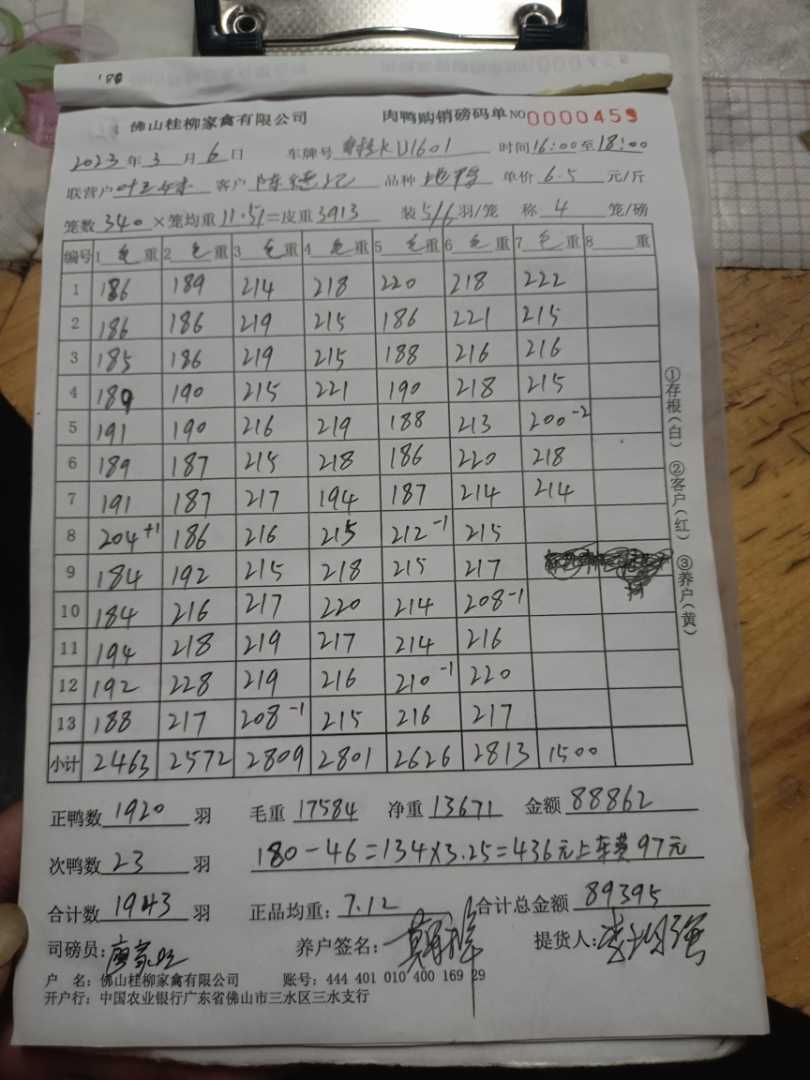 180
佛山桂柳家禽有限公司 肉鸭购销磅码单 NO 0000459
2023年3月6日 车牌号 KU1601 时间16:00至18:00
联营户 客户 品种 单价6.5元/斤
笼数340×笼均重11.51=皮重3913 装5/6羽/笼 称4笼/磅
编号 1毛重 2毛重 3毛重 4毛重 5毛重 6毛重 7毛重 8重
1 186 189 214 218 220 218 222
2 186 186 219 215 186 221 215
3 185 186 219 215 188 216 216
4 189 190 215 221 190 218 215
5 191 190 216 219 188 213 200-2
6 189 187 215 218 186 220 218
7 191 187 217 194 187 214 214
8 204+1 186 216 215 212-1 215
9 184 192 215 218 215 217
10 184 216 217 220 214 208-1
11 194 218 219 217 214 216
12 192 228 219 216 210-1 220
13 188 217 208-1 215 216 217
小计 2463 2572 2809 2801 2626 2813 1500
①存根(白) ②客户(红) ③养户(黄)
正鸭数1920羽 毛重17584 净重13671 金额88862
次鸭数23羽 180-46=134×3.25=436元上车费97元
合计数1943羽 正品均重:7.12 合计总金额89395
司磅员: 养户签名: 提货人:
户 名:佛山桂柳家禽有限公司 账号:444 401 010 400 169 29
开户行:中国农业银行广东省佛山市三水区三水支行